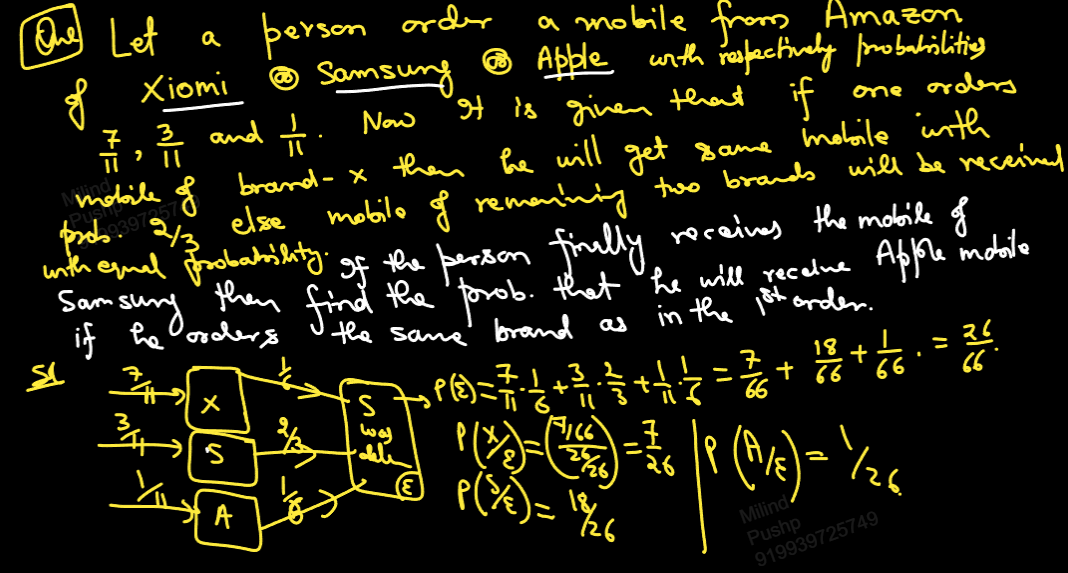 Que Let a person order a mobile from Amazon
of Xiomi or Samsung or Apple with respectively probabilities
7/11, 3/11 and 1/11. Now It is given that if one orders
mobile of brand-x then he will get same mobile with
prob. 2/3 else mobile of remaining two brands will be received
with equal probability. If the person finally receives the mobile of
Samsung then find the prob. that he will receive Apple mobile
if he orders the same brand as in the 1st order.
Sol
7/11 X 1/6
3/11 S 2/3
1/11 A 1/6
S was (E)
P(E) = 7/11 . 1/6 + 3/11 . 2/3 + 1/11 . 1/6 = 7/66 + 18/66 + 1/66 . = 26/66.
P(X/E) = (7/66 / 26/26) = 7/26
P(S/E) = 18/26
P(A/E) = 1/26.
Milind
Pushp
919939725749
Milind
Pushp
919939725749